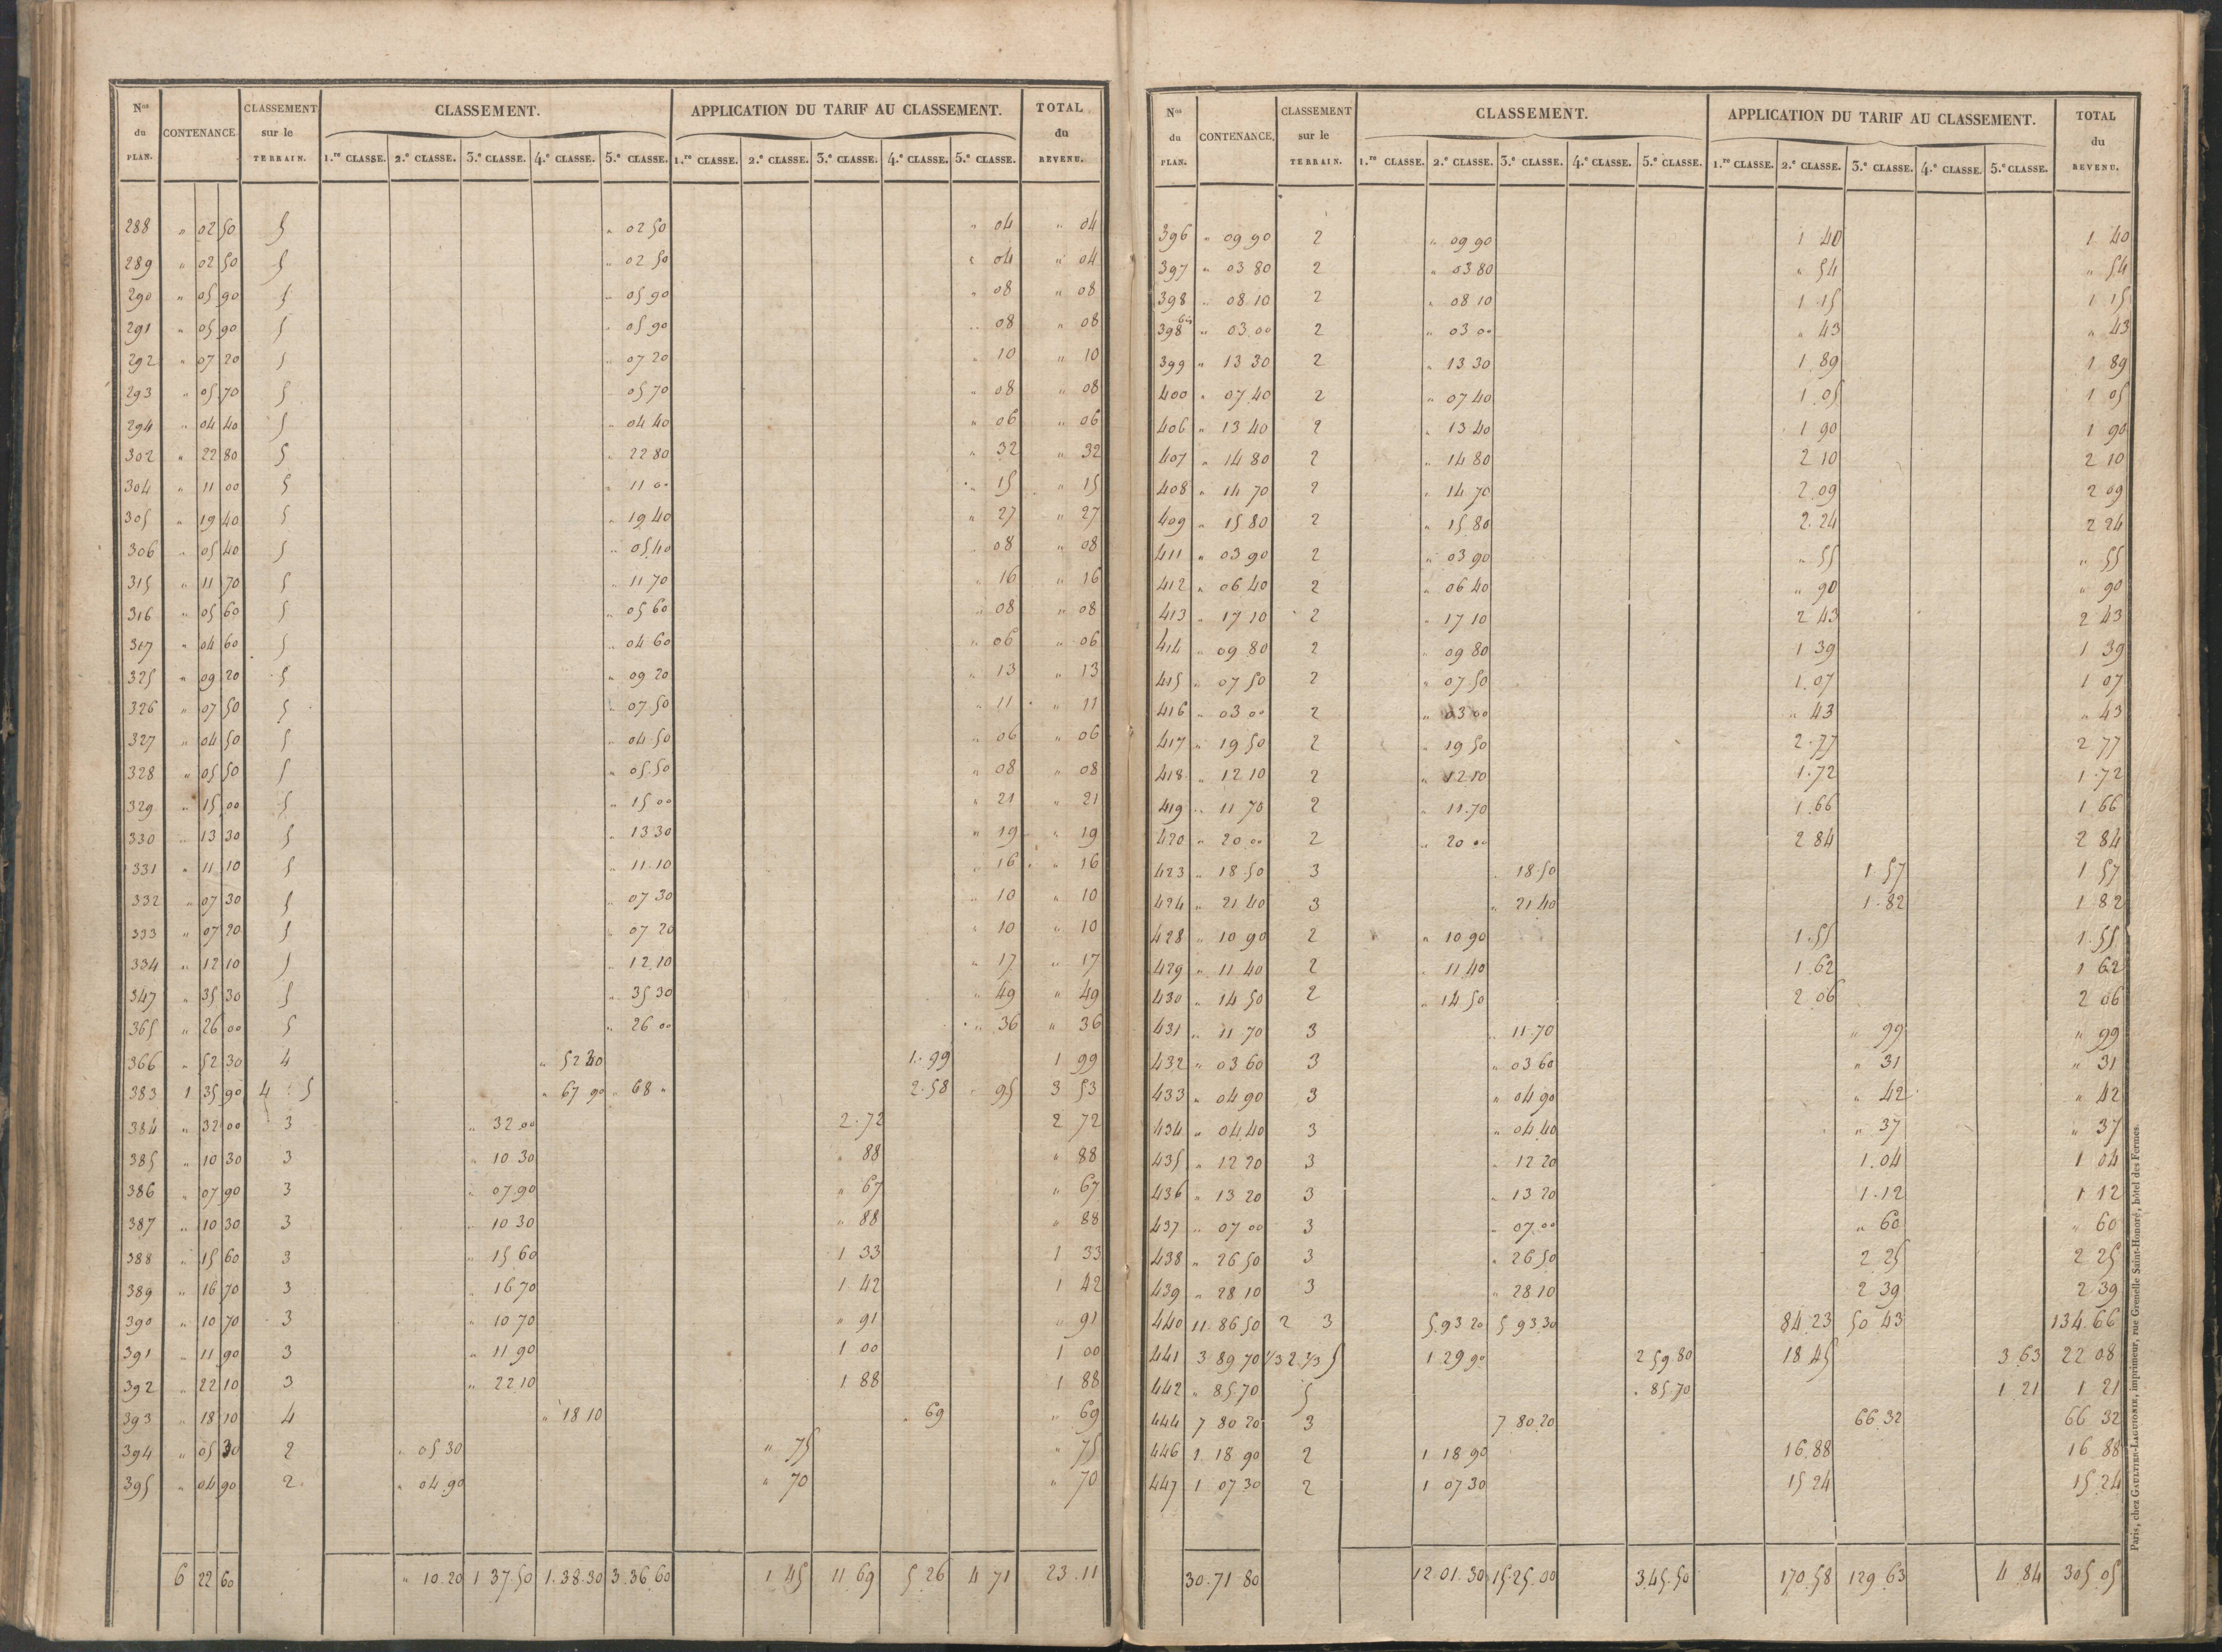 Nos du PLAN. CONTENANCE. CLASSEMENT sur le TERRAIN. CLASSEMENT. APPLICATION DU TARIF AU CLASSEMENT. TOTAL du REVENU.
1.re CLASSE. 2.e CLASSE. 3.e CLASSE. 4.e CLASSE. 5.e CLASSE. 1.re CLASSE. 2.e CLASSE. 3.e CLASSE. 4.e CLASSE. 5.e CLASSE.
288 " 02 50 5 " 02 50 " 04 " 04
289 " 02 50 5 " 02 50 " 04 " 04
290 " 05 90 5 " 05 90 " 08 " 08
291 " 05 90 5 " 05 90 " 08 " 08
292 " 07 20 5 " 07 20 " 10 " 10
293 " 05 70 5 05 70 " 08 " 08
294 " 04 40 5 " 04 40 " 06 " 06
302 " 22 80 5 " 22 80 " 32 " 32
304 " 11 00 5 " 11 00 " 15 " 15
305 " 19 40 5 " 19 40 " 27 " 27
306 " 05 40 5 " 05 40 " 08 " 08
315 " 11 70 5 " 11 70 " 16 " 16
316 " 05 60 5 " 05 60 " 08 " 08
317 " 04 60 5 " 04 60 " 06 " 06
325 " 09 20 5 " 09 20 " 13 " 13
326 " 07 50 5 " 07 50 " 11 " 11
327 " 04 50 5 " 04 50 " 06 " 06
328 " 05 50 5 " 05 50 " 08 " 08
329 " 15 00 5 " 15 00 " 21 " 21
330 " 13 30 5 " 13 30 " 19 " 19
331 " 11 10 5 " 11 10 " 16 " 16
332 " 07 30 5 " 07 30 " 10 " 10
333 " 07 20 5 " 07 20 " 10 " 10
334 " 12 10 5 " 12 10 " 17 " 17
347 " 35 30 5 " 35 30 " 49 " 49
365 " 26 00 5 " 26 00 " 36 " 36
366 " 52 30 4 " 52 30 1. 99 1 99
383 1 35 90 4 5 " 67 90 " 68 " 2. 58 " 95 3 53
384 " 32 00 3 " 32 00 2. 72 2 72
385 " 10 30 3 " 10 30 " 88 " 88
386 " 07 90 3 " 07 90 " 67 " 67
387 " 10 30 3 " 10 30 " 88 " 88
388 " 15 60 3 " 15 60 1 33 1 33
389 " 16 70 3 " 16 70 1 42 1 42
390 " 10 70 3 " 10 70 " 91 " 91
391 " 11 90 3 " 11 90 1 00 1 00
392 " 22 10 3 " 22 10 1 88 1 88
393 " 18 10 4 " 18 10 " 69 " 69
394 " 05 30 2 " 05 30 " 75 " 75
395 " 04 90 2 " 04 90 " 70 " 70
6 22 60 " 10.20 1 37.50 1.38.30 3.36.60 1 45 11 69 5 26 4 71 23.11
Nos du PLAN. CONTENANCE. CLASSEMENT sur le TERRAIN. CLASSEMENT. APPLICATION DU TARIF AU CLASSEMENT. TOTAL du REVENU.
1.re CLASSE. 2.e CLASSE. 3.e CLASSE. 4.e CLASSE. 5.e CLASSE. 1.re CLASSE. 2.e CLASSE. 3.e CLASSE. 4.e CLASSE. 5.e CLASSE.
396 " 09 90 2 " 09 90 1 40 1 40
397 " 03 80 2 " 03 80 " 54 " 54
398 " 08 10 2 " 08 10 1 15 1 15
398 bis " 03 00 2 " 03 00 " 43 " 43
399 " 13 30 2 " 13 30 1 89 1 89
400 " 07 40 2 " 07 40 1 05 1 05
406 " 13 40 2 " 13 40 1 90 1 90
407 " 14 80 2 " 14 80 2 10 2 10
408 " 14 70 2 " 14 70 2 09 2 09
409 " 15 80 2 " 15 80 2. 24 2 24
411 " 03 90 2 " 03 90 " 55 " 55
412 " 06 40 2 " 06 40 " 90 " 90
413 " 17 10 2 " 17 10 2 43 2 43
414 " 09 80 2 " 09 80 1 39 1 39
415 " 07 50 2 " 07 50 1. 07 1 07
416 " 03 00 2 " 03 00 " 43 " 43
417 " 19 50 2 " 19 50 2. 77 2 77
418 " 12 10 2 " 12 10 1. 72 1. 72
419 " 11 70 2 " 11. 70 1. 66 1 66
420 " 20 00 2 " 20 00 2 84 2 84
423 " 18 50 3 " 18 50 1 57 1 57
424 " 21 40 3 " 21 40 1. 82 1 82
428 " 10 90 2 " 10 90 1. 55 1. 55
429 " 11 40 2 " 11 40 1 62 1 62
430 " 14 50 2 " 14 50 2 06 2 06
431 " 11 70 3 " 11 70 " 99 " 99
432 " 03 60 3 " 03 60 " 31 " 31
433 " 04 90 3 " 04 90 " 42 " 42
434 " 04 40 3 " 04 40 " 37 " 37
435 " 12 20 3 " 12 20 1. 04 1 04
436 " 13 20 3 " 13 20 1. 12 1 12
437 " 07 00 3 " 07 00 " 60 " 60
438 " 26 50 3 " 26 50 2 25 2 25
439 " 28 10 3 " 28 10 2 39 2 39
440 11. 86 50 2 3 5.93 20 5 93 30 84 23 50 43 134.66
441 3 89 70 1/3 2. 2/3 5 1 29 90 2 59.80 18 45 3 63 22 08
442 " 85.70 5 " 85.70 1 21 1 21
444 7 80 20 3 7 80.20 66 32 66 32
446 1 18 90 2 1 18 90 16.88 16 88
447 1 07 30 2 1 07 30 15 24 15 24
30.71 80 12 01.30 15.25.00 3.45.50 170.58 129 63 4 84 305 05
Paris, chez GAULTIER-LAGUIONIE, imprimeur, rue Grenelle Saint-Honoré, hôtel des Fermes.